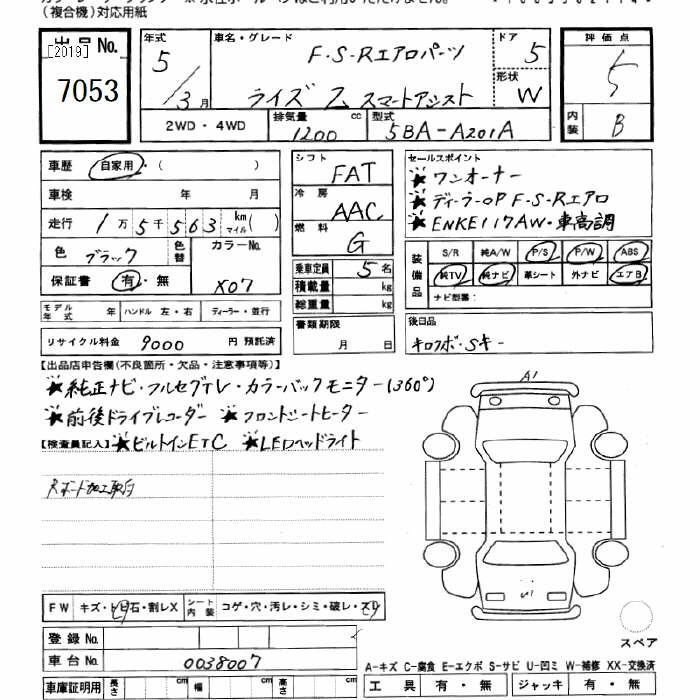 (複合機)対応用紙
出品No.
[2019]
7053
年式
5
/3月
車名・グレード
F・S・Rエアロパーツ
ライズ Z スマートアシスト
ドア
5
形状
W
評価点
5
内装
B
2WD・4WD
排気量
1200 cc
型式
5BA-A201A
車歴
自家用・( )
車検 年 月
走行 1万5千563 km マイル( )
色 ブラック
色替
カラーNo.
X07
保証書 有・無
シフト
FAT
冷房
AAC
燃料
G
乗車定員 5名
積載量 kg
総重量 kg
セールスポイント
★ワンオーナー
★ディーラーOP F・S・Rエアロ
★ENKEI 17AW・車高調
装備品
S/R 純A/W P/S P/W ABS
純TV 純ナビ 革シート 外ナビ エアB
ナビ型番:
モデル年式 年
ハンドル 左・右
ディーラー・並行
リサイクル料金 9000 円 預託済
書類期限
月 日
後日品
キロフボ・Sキー
【出品店申告欄(不良箇所・欠品・注意事項等)】
★純正ナビ・フルセグTV・カラーバックモニター(360°)
★前後ドライブレコーダー ★フロントシートヒーター
【検査員記入】★ビルトインETC ★LEDヘッドライト
Rボード加工取白
A1
FW キズ・ヒビ石・割レX
シート内装 コゲ・穴・汚レ・シミ・破レ・スレ
登録No.
車台No. 0038007
車庫証明用 長さ cm 幅 cm 高さ cm
スペア
A-キズ C-腐食 E-エクボ S-サビ U-凹ミ W-補修 XX-交換済
工具 有・無 ジャッキ 有・無